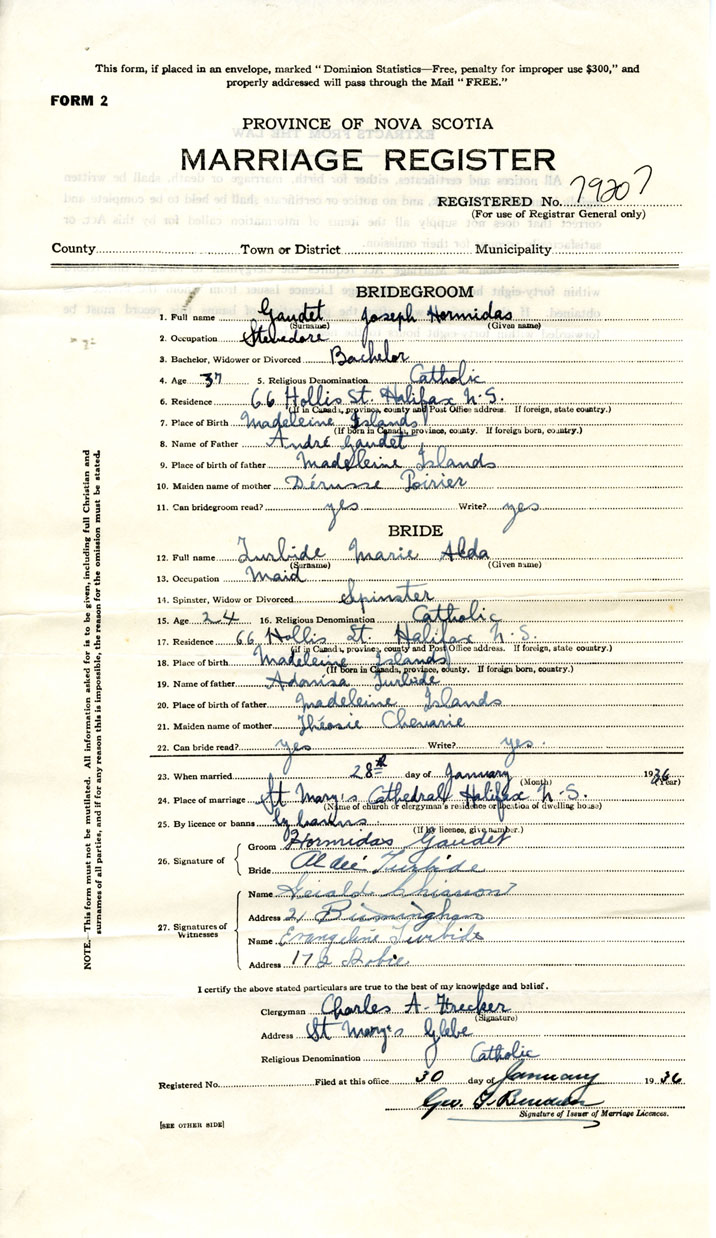 This form, if placed in an envelope, marked "Dominion Statistics—Free, penalty for improper use $300," and
properly addressed will pass through the Mail "FREE."
FORM 2
PROVINCE OF NOVA SCOTIA
MARRIAGE REGISTER
REGISTERED No. 79207
(For use of Registrar General only)
County Town or District Municipality
BRIDEGROOM
1. Full name Gaudet Joseph Hormidas
(Surname) (Given name)
2. Occupation Stevedore
3. Bachelor, Widower or Divorced Bachelor
4. Age 37 5. Religious Denomination Catholic
6. Residence 66 Hollis St. Halifax N.S.
(If in Canada, province, county and Post Office address. If foreign, state country.)
7. Place of Birth Madeleine Islands
(If born in Canada, province, county. If foreign born, country.)
8. Name of Father André Gaudet
9. Place of birth of father Madeleine Islands
10. Maiden name of mother Poirier
11. Can bridegroom read? yes Write? yes
BRIDE
12. Full name Turbide Marie Alda
(Surname) (Given name)
13. Occupation Maid
14. Spinster, Widow or Divorced Spinster
15. Age 24 16. Religious Denomination Catholic
17. Residence 66 Hollis St. Halifax N.S.
(If in Canada, province, county and Post Office address. If foreign, state country.)
18. Place of birth Madeleine Islands
(If born in Canada, province, county. If foreign born, country.)
19. Name of father Turbide
20. Place of birth of father Madeleine Islands
21. Maiden name of mother Théosie Chevarie
22. Can bride read? yes Write? yes.
23. When married 28th day of January 1936
(Month) (Year)
24. Place of marriage St Mary's Cathedral Halifax N.S.
(Name of church or clergyman's residence or location of dwelling house)
25. By licence or banns by banns
(If by licence, give number.)
26. Signature of
Groom Hormidas Gaudet
Bride Turbide
27. Signatures of Witnesses
Name Chiasson
Address 21 Birmingham
Name Evangeline Turbide
Address 172 Robie
I certify the above stated particulars are true to the best of my knowledge and belief.
Clergyman Charles A. Hrecker
(Signature)
Address St Mary's Glebe
Religious Denomination Catholic
Registered No. Filed at this office 30 day of January 1936
Signature of Issuer of Marriage Licences.
[SEE OTHER SIDE]
NOTE.—This form must not be mutilated. All information asked for is to be given, including full Christian and
surnames of all parties, and if for any reason this is impossible, the reason for the omission must be stated.